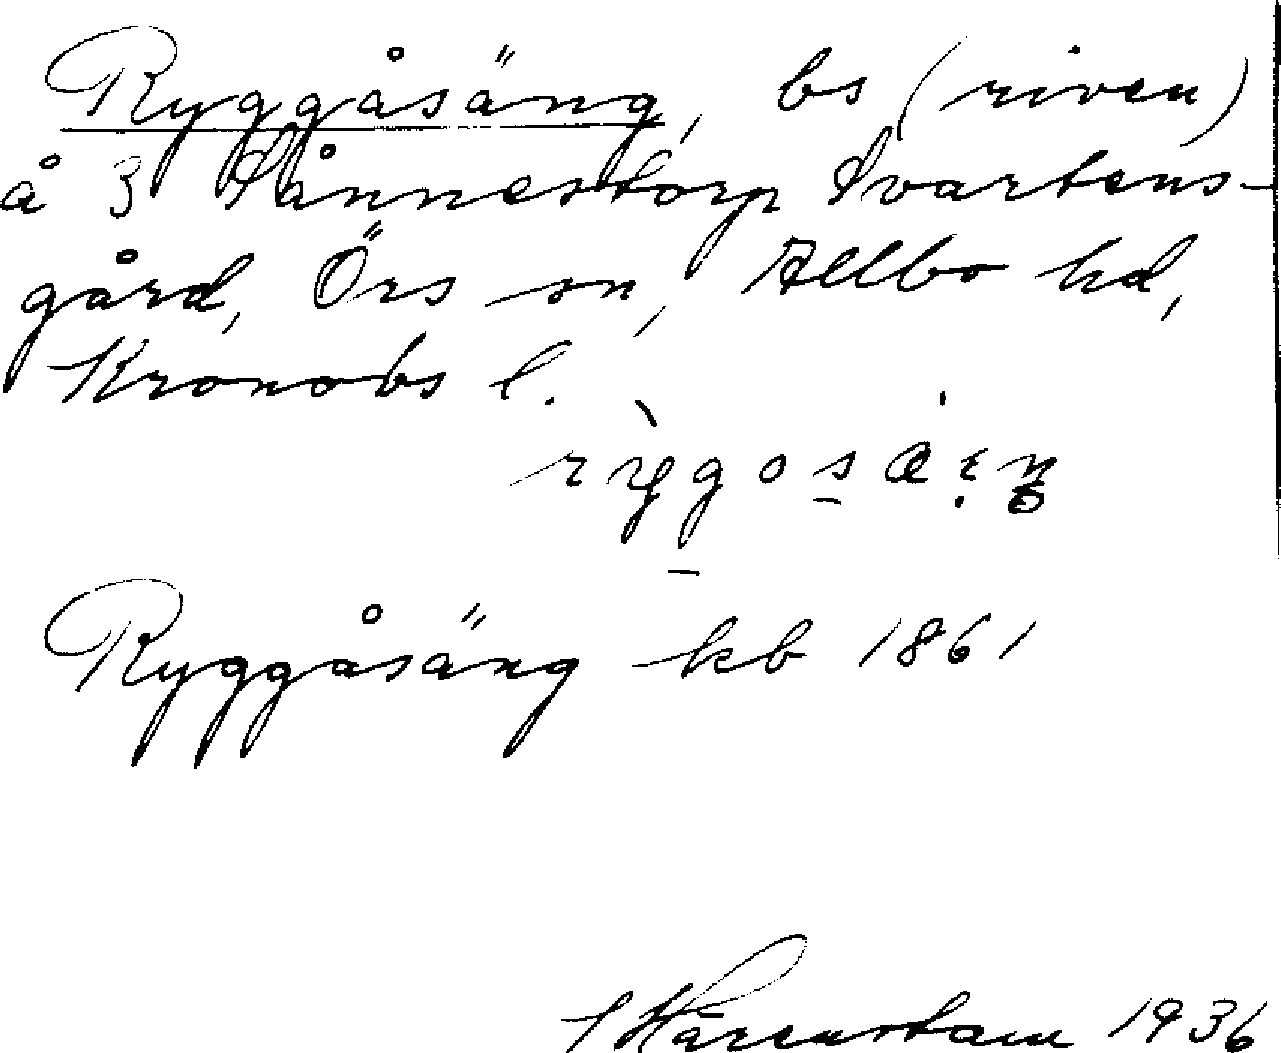 Ryggåsäng, bs (riven)
å 3 Sånnestorp Svartens-
gård, Örs sn, Allbo hd,
Kronobs l.
Ryggåsäng kb 1861
1936